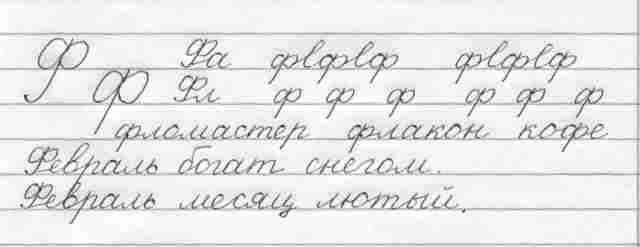 Ф Фа фвфвф фвфвф
ф Фл ф ф ф ф ф ф
фломастер флакон кофе
Февраль богат снегом.
Февраль месяц лютый.